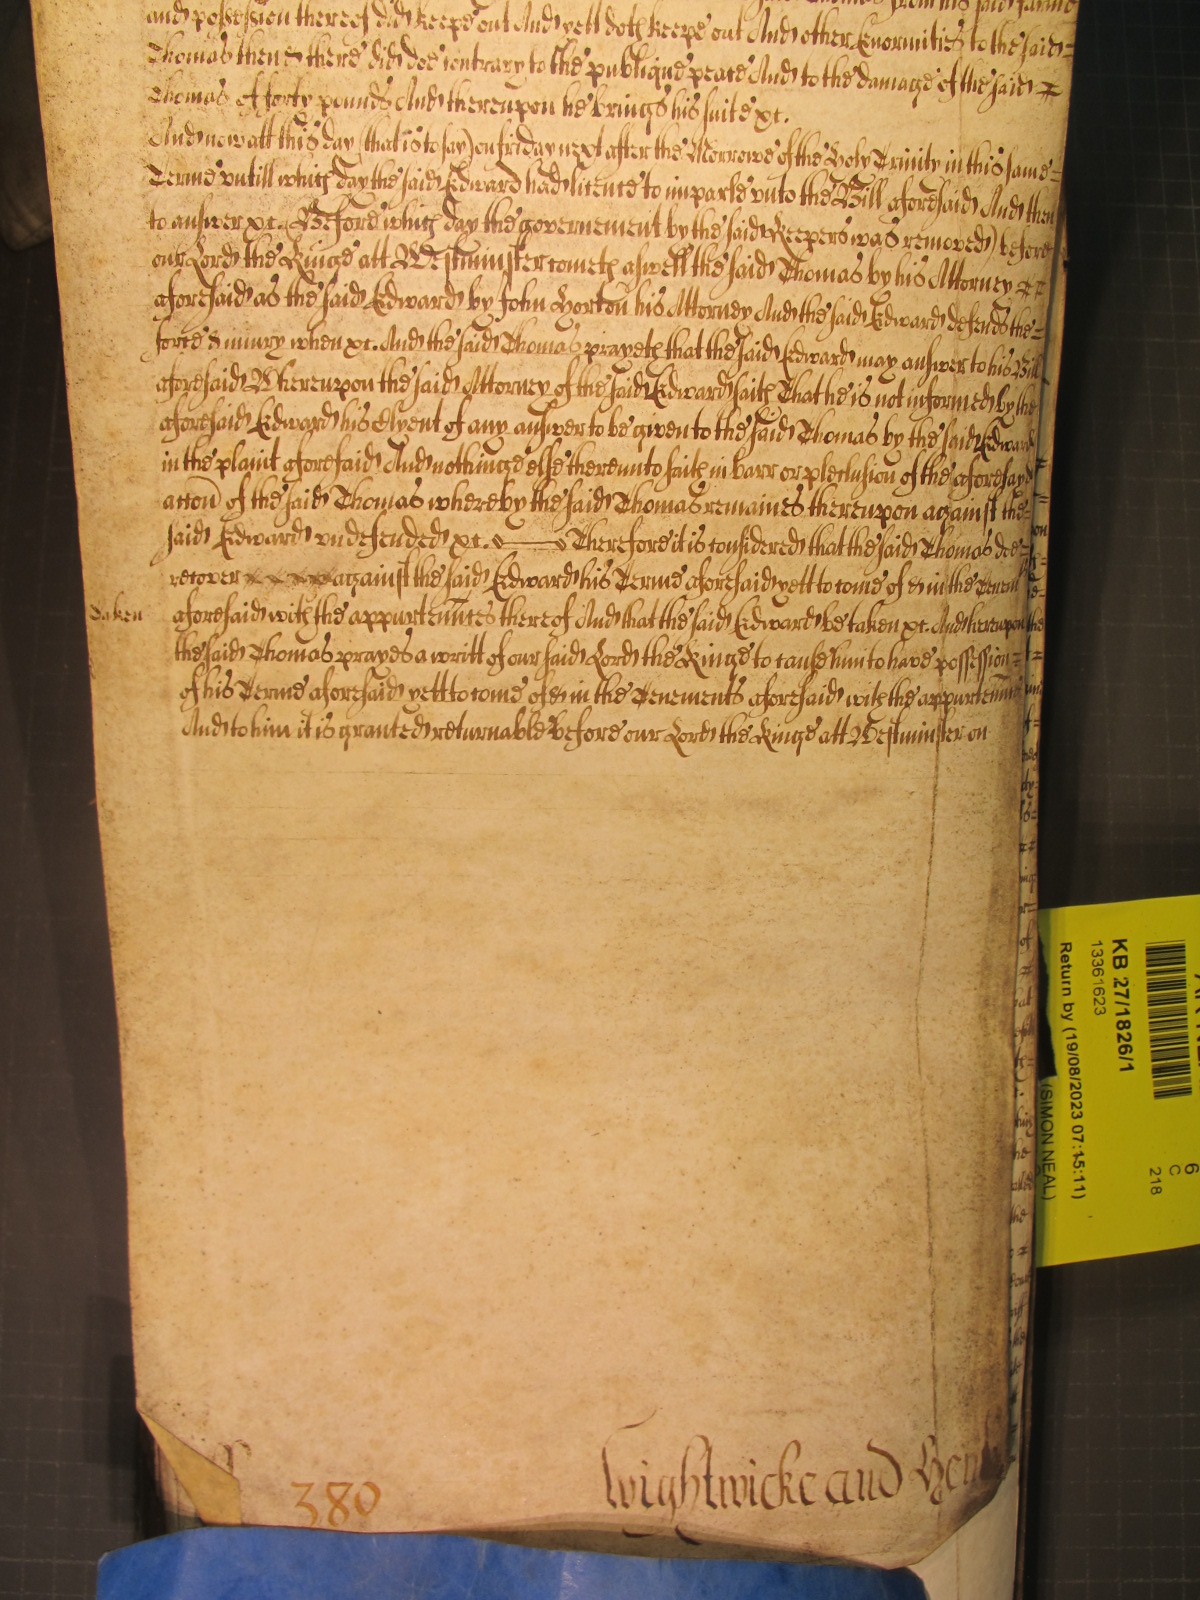 and possession thereof did keepe out And yett doth keepe out And other Enormities to the said =
Thomas then & there did doe contrary to the publique peace And to the damage of the said =
Thomas of forty pounds And thereupon he brings his suite xc.
And now att this day (that is to say) on friday next after the Morrowe of the Holy Trinity in this same =
Terme untill which day the said Edward had licence to imparle unto the Bill aforesaid And then
to answer xc. (Before which day the governement by the said Keepers was removed) before
our Lord the Kinge att Westminster cometh aswell the said Thomas by his Attorney
aforesaid as the said Edward by John Horton his Attorney And the said Edward defends the =
force & iniury when xc. And the said Thomas prayeth that the said Edward may answer to his Bill
aforesaid Whereupon the said Attorney of the said Edward saith That he is not informed by the
aforesaid Edward his Clyent of any answer to be given to the said Thomas by the said Edward
in the plaint aforesaid And nothinge else thereunto saith in barr or preclusion of the aforesayd
accon of the said Thomas whereby the said Thomas remaines thereupon against the =
said Edward undefended xc. Therefore it is considered that the said Thomas doe =
recover against the said Edward his Terme aforesaid yett to come of & in the Tenemts
Taken
aforesaid with the appurtennces thereof And that the said Edward be taken xc. And hereupon
the said Thomas prayes a writt of our said Lord the Kinge to cause him to have possession =
of his Terme aforesaid yett to come of & in the Tenements aforesaid with the appurtennces
And to him it is granted returnable before our Lord the Kinge att Westminster on
380
Wightwicke and Hen
KB 27/1826/1
13361623
Return by (19/08/2023 07:15:11)
(SIMON NEAL)
6
C
218